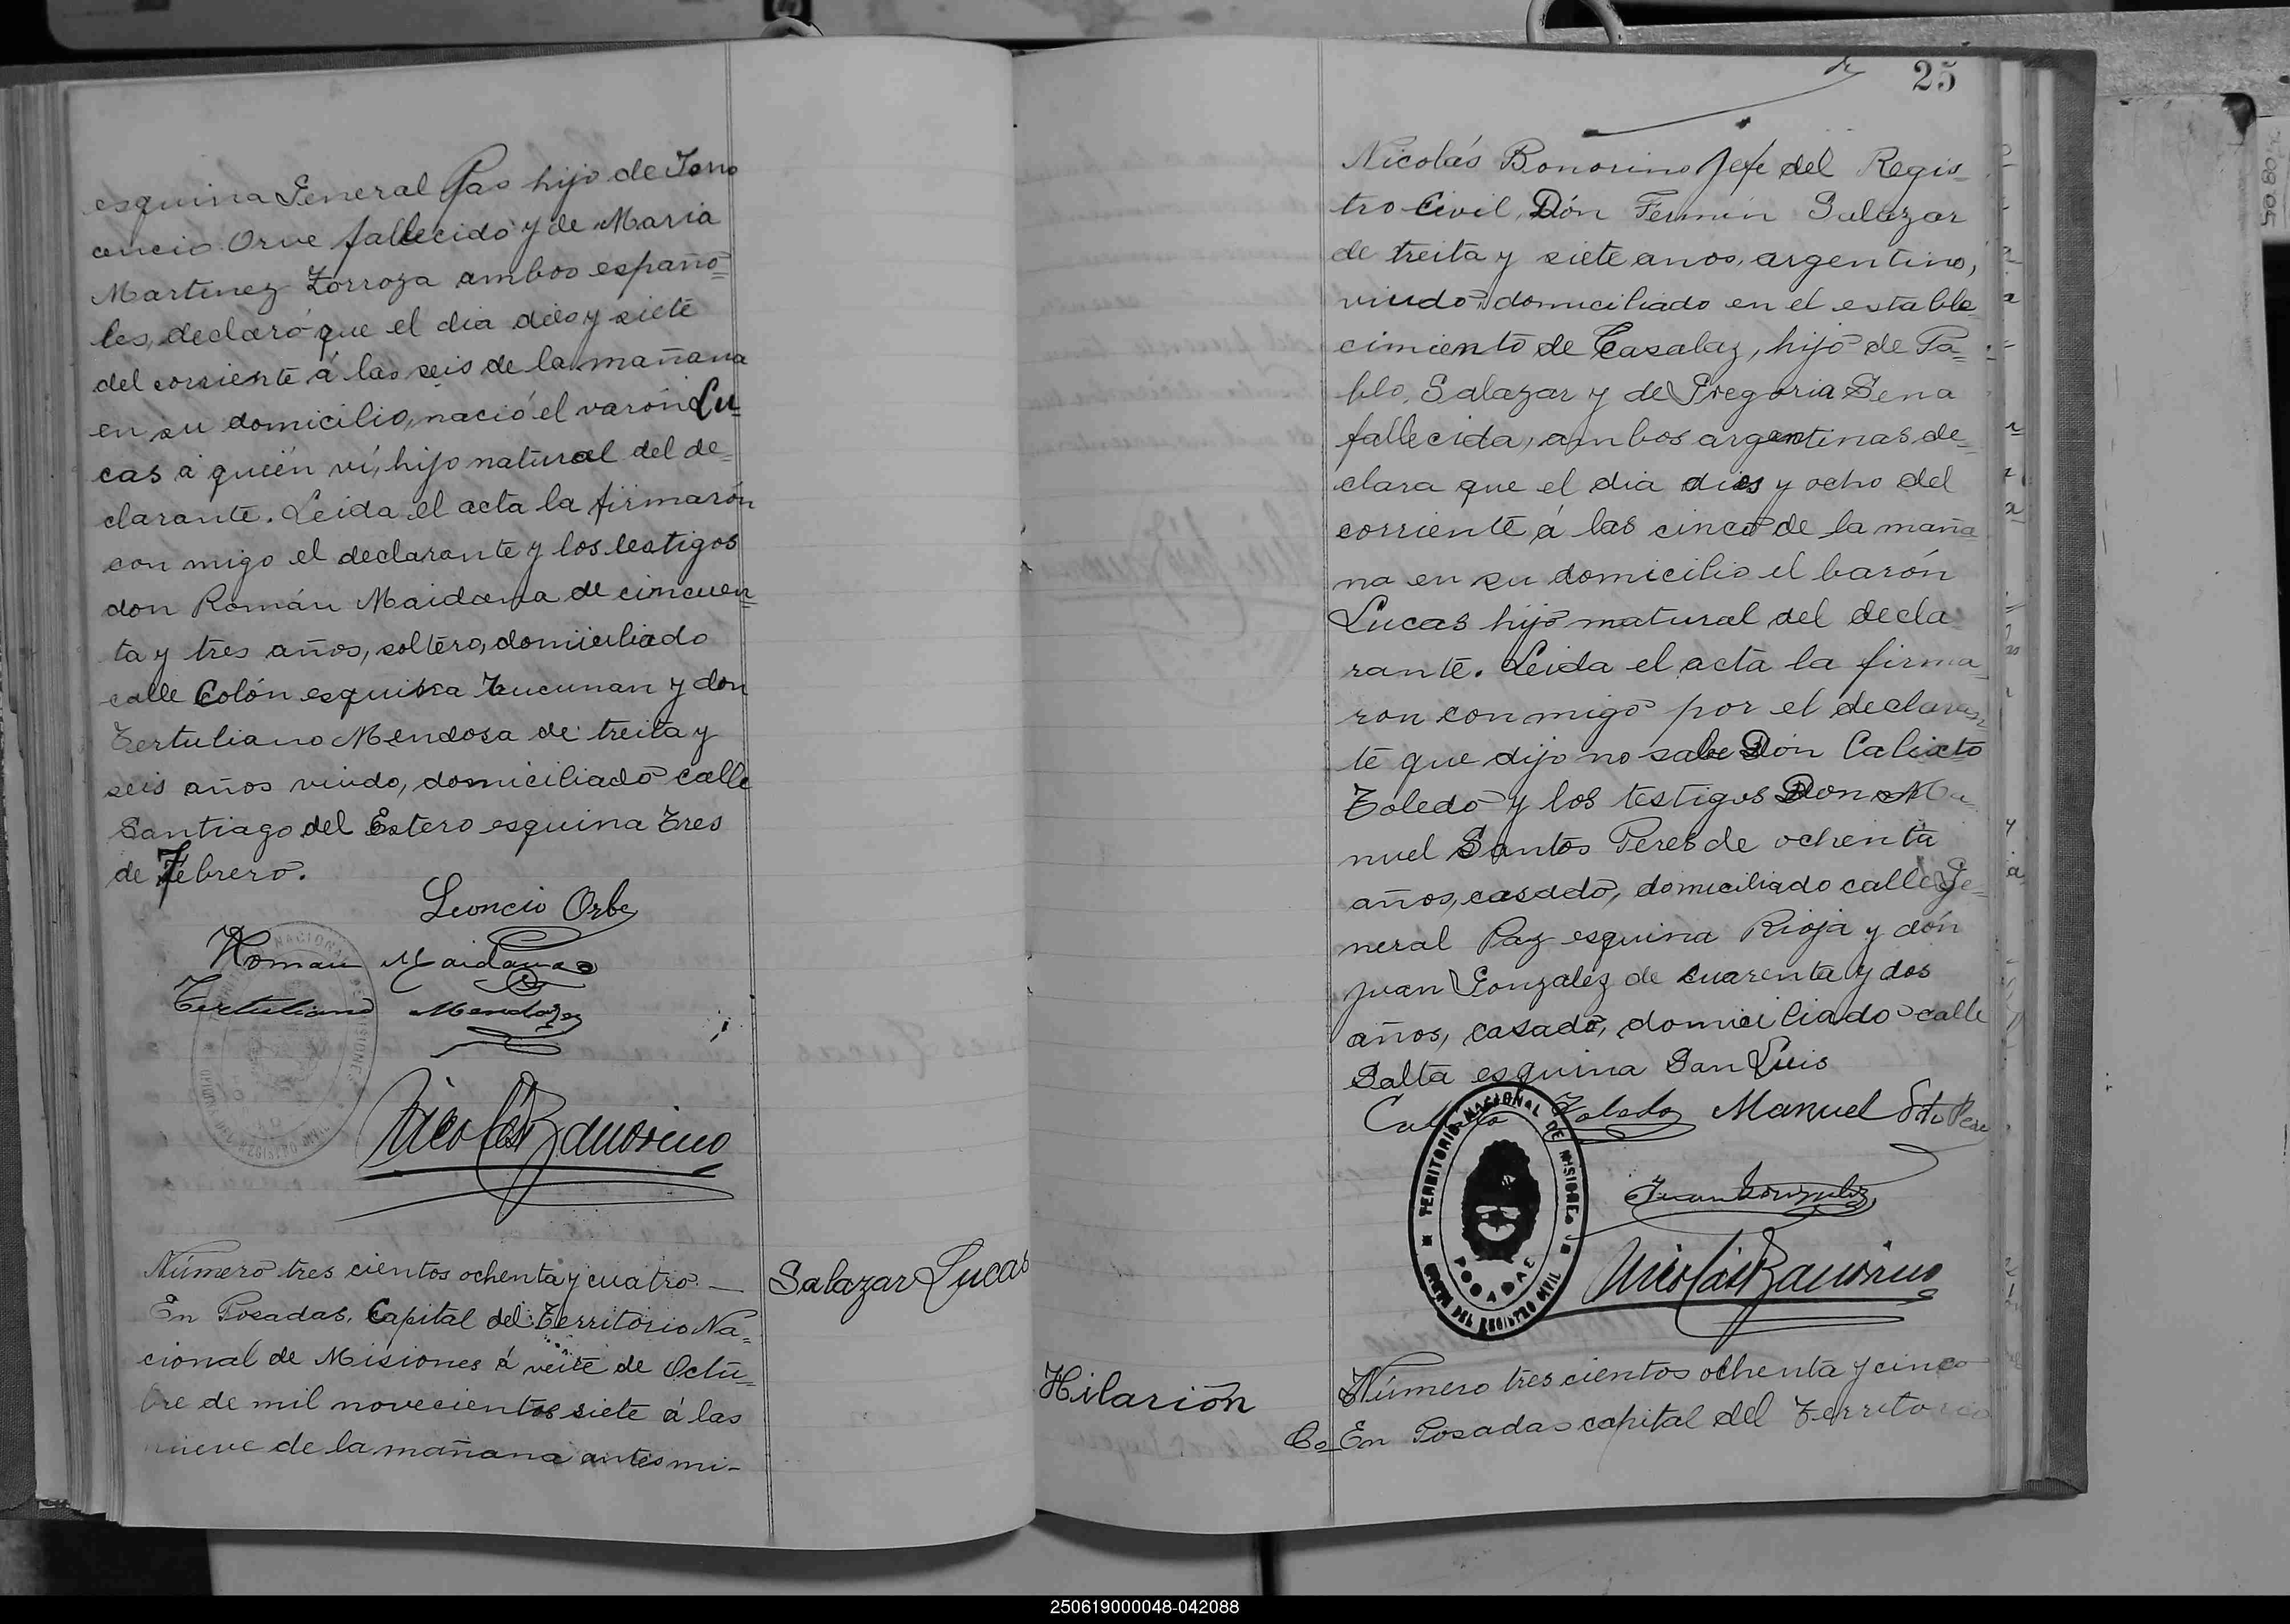 esquina General Pas hijo de
oncio Orve fallecido y de Maria
Martinez Zorroza ambos españo=
les, declaró que el dia dies y siete
del corriente á las seis de la mañana
en su domicilio, nació el varón Lu=
cas á quién ví, hijo natural del de=
clarante. Leida el acta la firmarón
con migo el declarante y los testigos
don Román Maidana de cincuen=
ta y tres años, soltero, domiciliado
calle Colón esquina Tucuman y don
Tertuliano Mendosa de treita y
seis años viudo, domiciliado calle
Santiago del Estero esquina Tres
de Febrero.
Leoncio Orbe
Roman Maidana
Tertuliano Mendoza
Nicolás Bonorino
Número tres cientos ochenta y cuatro. —
En Posadas, Capital del Territorio Na=
cional de Misiones á veite de Octu=
bre de mil novecientos siete á las
nueve de la mañana antes mi-
Salazar Lucas
25
Nicolás Bonorino Jefe del Regis=
tro Civil, Dón Fermin Salazar
de treita y siete anos, argentino,
viudo, domiciliado en el estable
cimiento de Casalaz, hijo de Pa=
blo, Salazar y de Gregoria Sena
fallecida, ambos argentinas de=
clara que el dia dies y ocho del
corriente á las cinco de la maña
na en su domicilio el barón
Lucas hijo natural del decla
rante. Leida el acta la firma
ron con migo por el declaran
te que dijo no sabe Dón Calixto
Toledo y los testigos Don Ma
nuel Santos Peres de ochenta
años, casado, domiciliado calle Ge=
neral Paz esquina Rioja y dón
Juan Gonzalez de cuarenta y dos
años, casado, domiciliado calle
Salta esquina San Luis
Toledo Manuel Sto Pere
TERRITORIO NACIONAL DE MISIONES
POSADAS
OFICINA DEL REGISTRO CIVIL
Juan Gonzalez
Nicolás Bonorino
Hilarión
Número tres cientos ochenta y cinco
En Posadas capital del Territorio
250619000048-042088